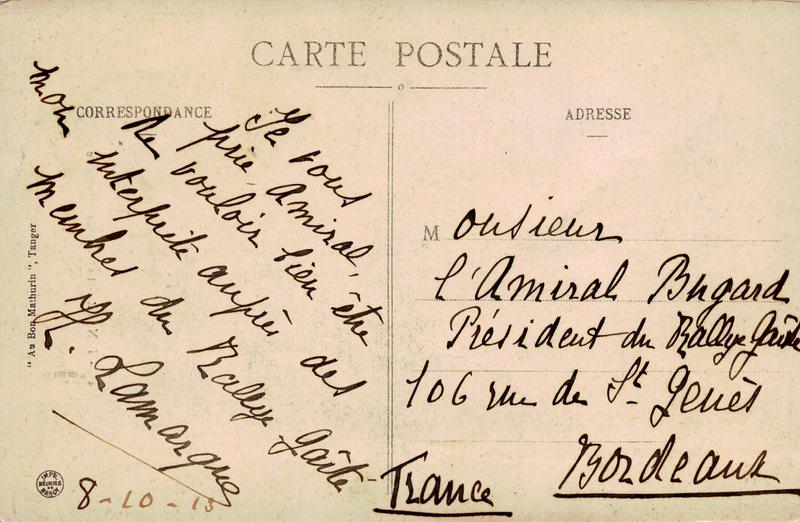 CARTE POSTALE
CORRESPONDANCE
ADRESSE
Je vous
prie, Amiral,
de vouloir bien être
mon interprète auprès des
membres du Rallye Gaîté
H. Lamarque
8-10-13
Monsieur
l'Amiral Bugard
Président du Rallye Gaîté
106 rue de St Genès
Bordeaux
France
"Au Bon Mathurin", Tanger
IMPR.
RÉUNIES
DE
NANCY